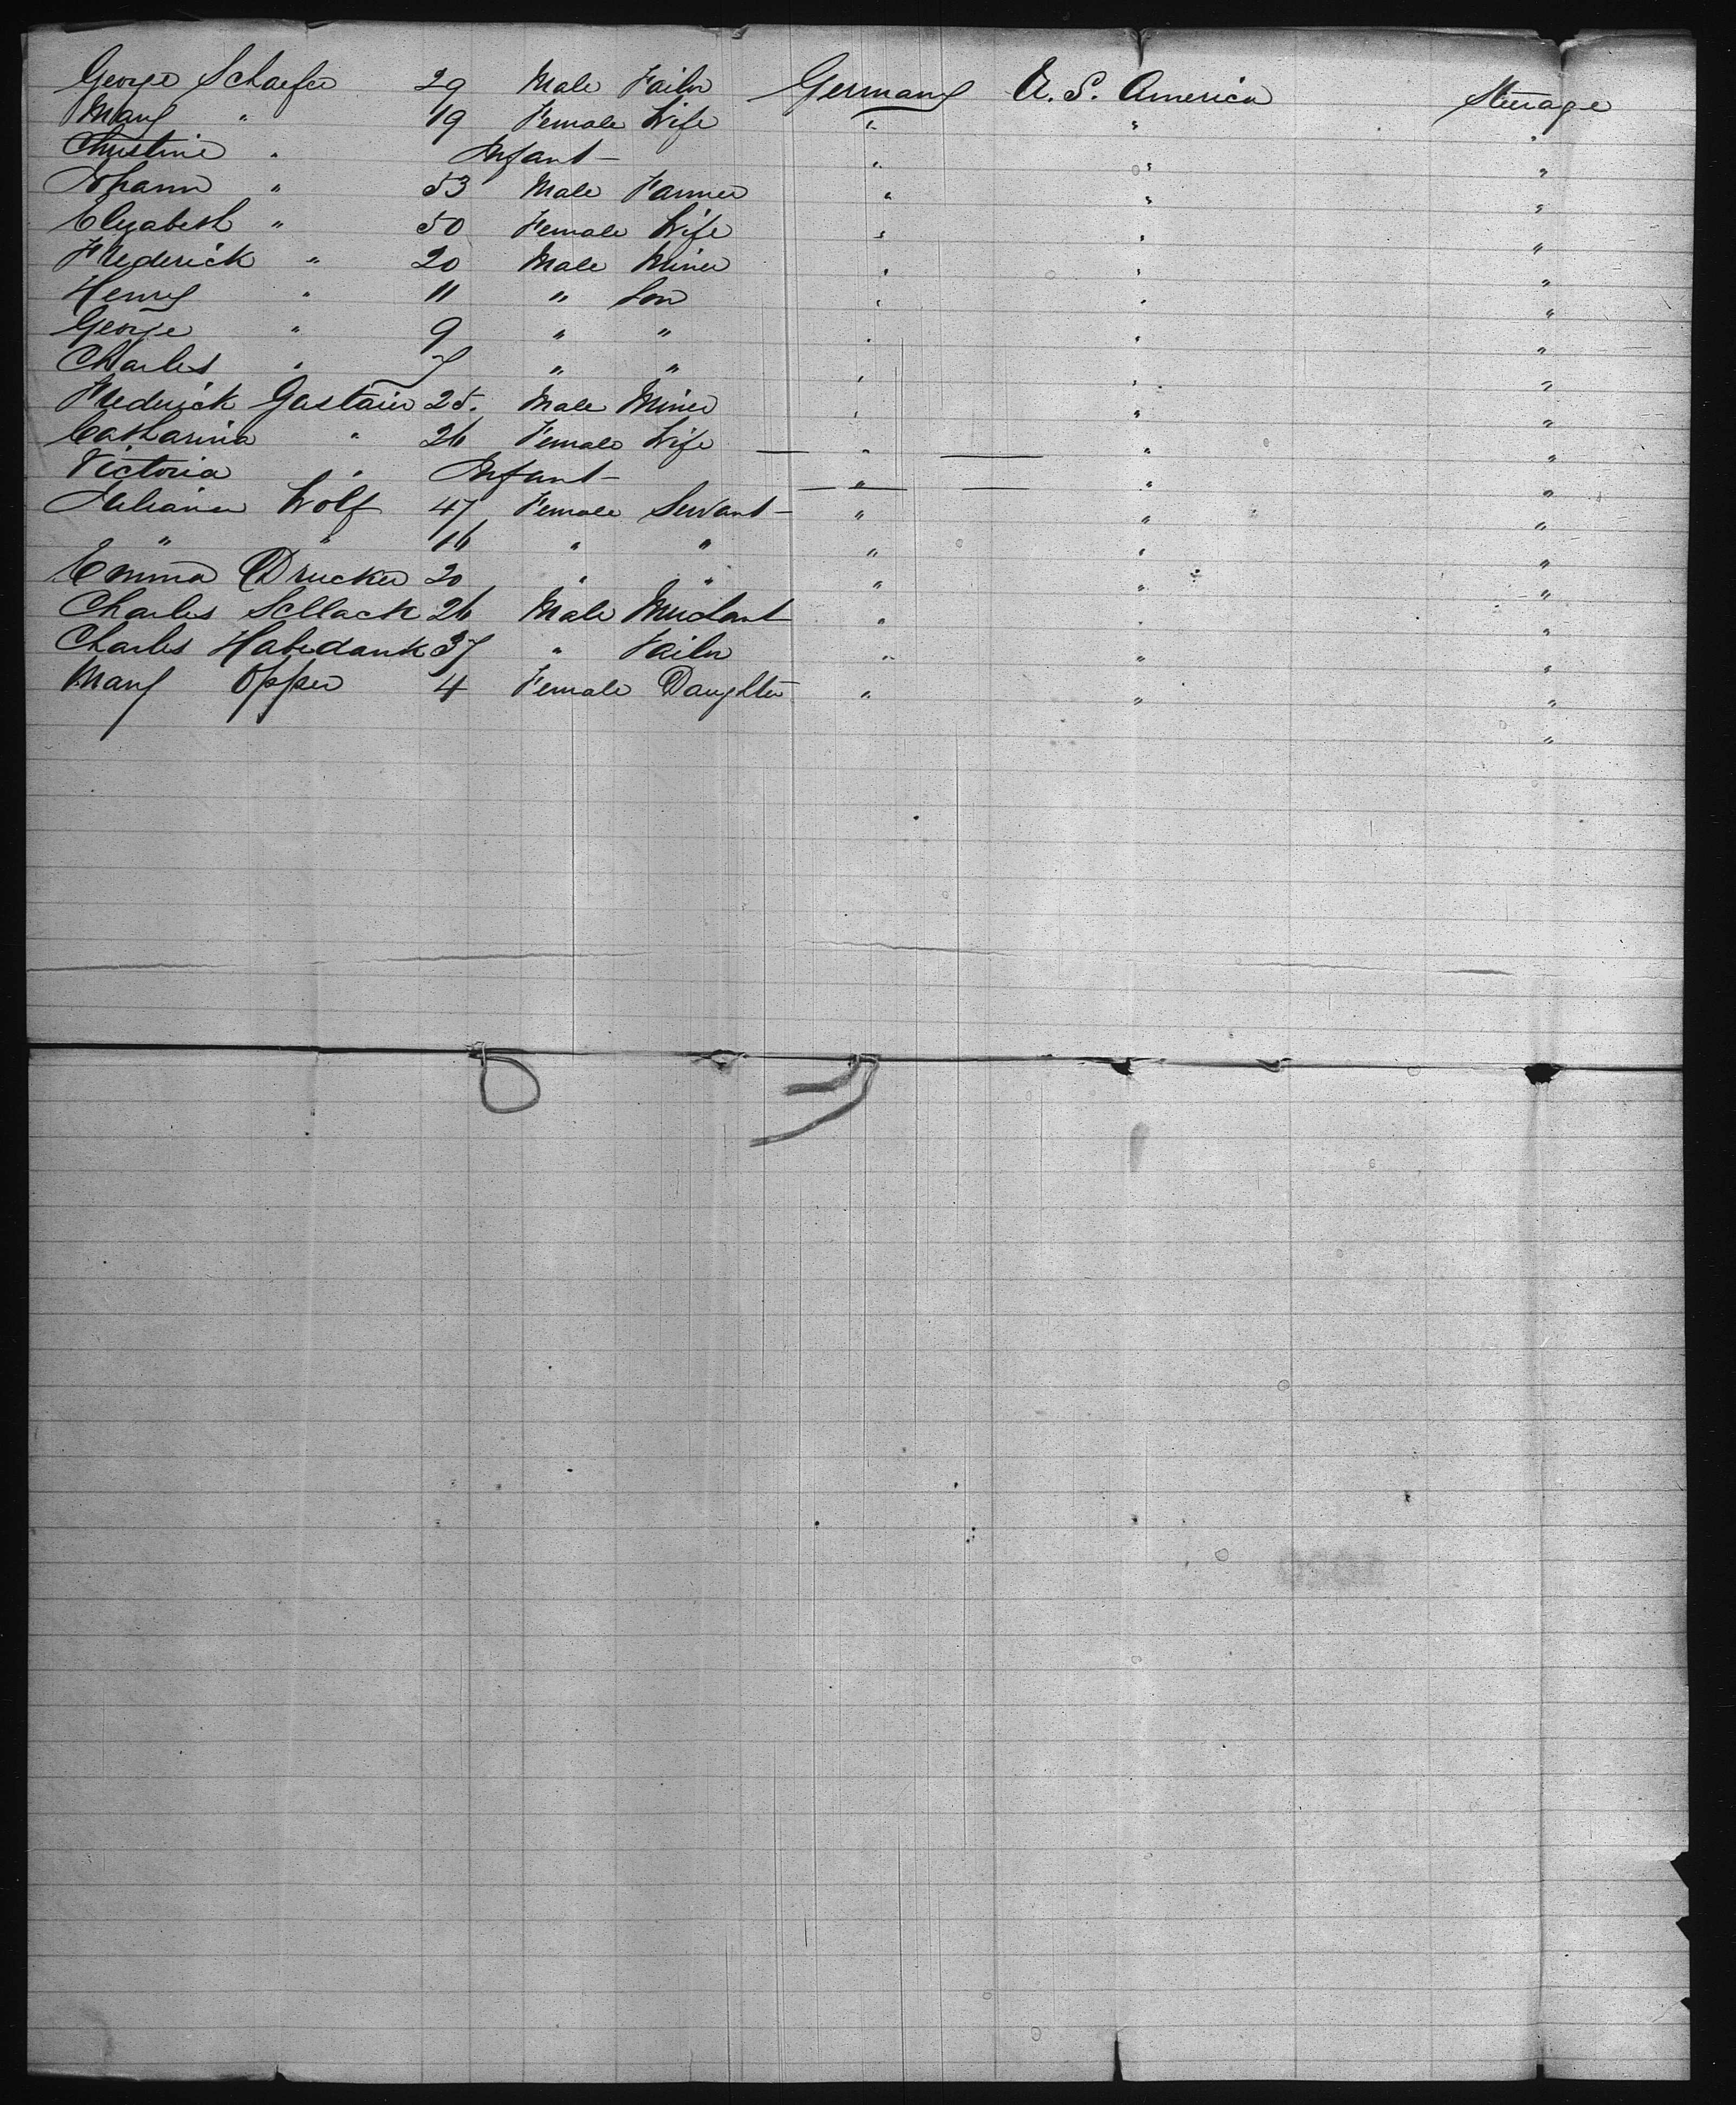 George Schaefer 29 Male Tailor Germany U. S. America Steerage
Mary " 19 Female Wife " " "
Christine " Infant " " "
Johann " 53 Male Farmer " " "
Elizabeth " 50 Female Wife " " "
Frederick " 20 Male Miner " " "
Henry " 11 " Son " " "
George " 9 " " " " "
Charles " 7 " " " " "
Frederick Gastair 25. Male Miner " " "
Catharina " 26 Female Wife — " — " "
Victoria " Infant — " — " "
Juliana Wolf 47 Female Servant " " "
" " 16 " " " " "
Emma Drucker 20 " " " " "
Charles Sellack 26 Male " " "
Charles Habedank 37 " Tailor " " "
Mary Opper 4 Female Daughter " " "
"